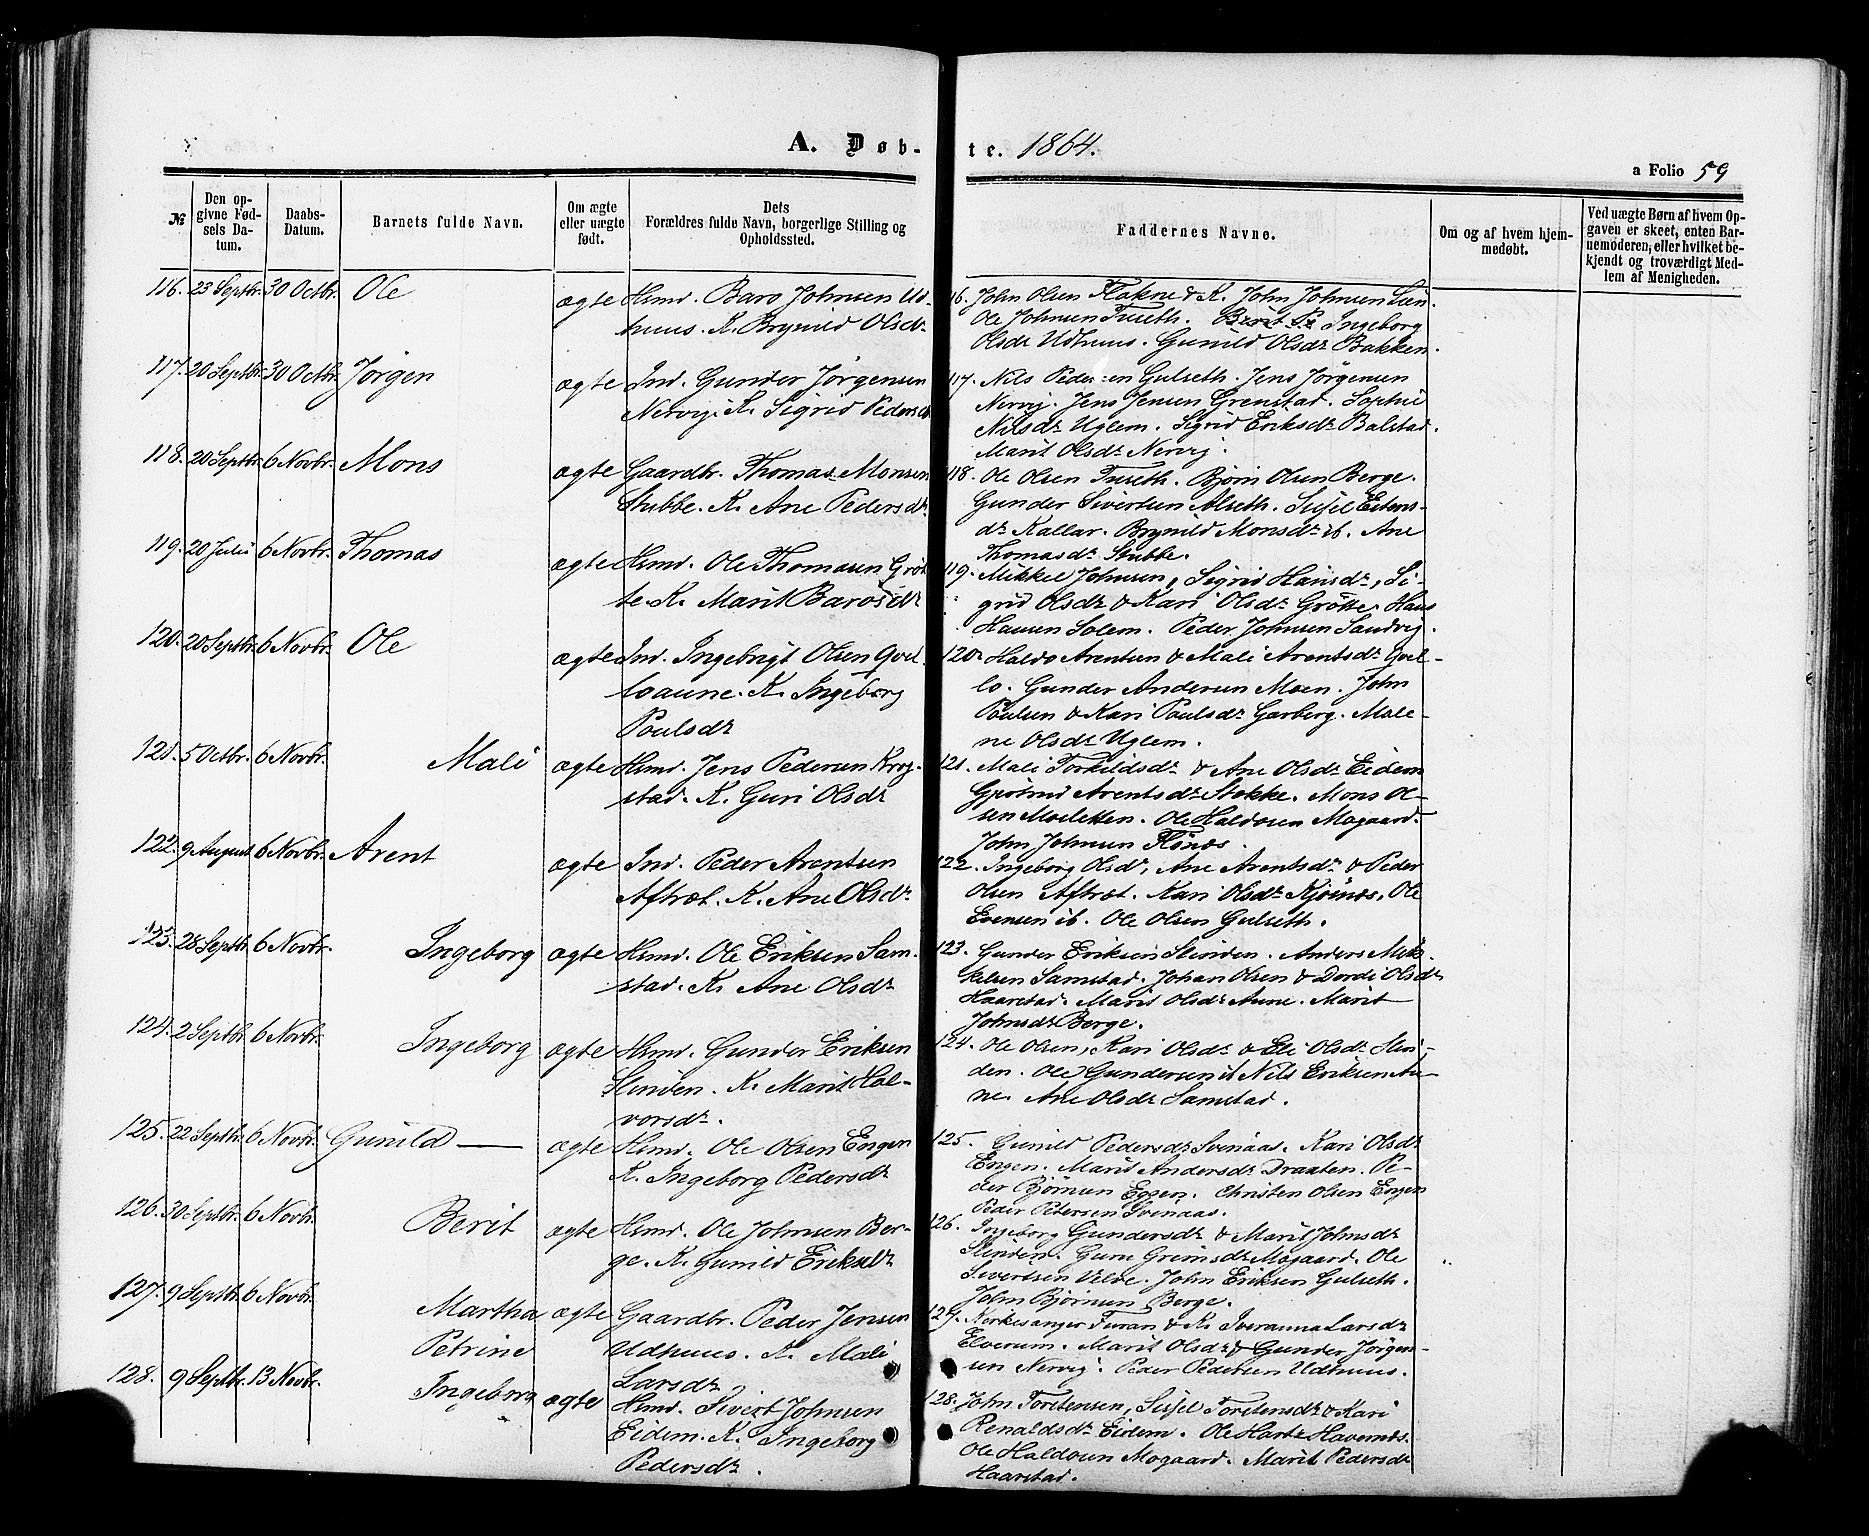 A. Døb-
te. 1864.
a Folio 59
№
Den op-
givne Fød-
sels Da-
tum.
Daabs-
Datum.
Barnets fulde Navn.
Om ægte
eller uægte
født.
Dets
Forældres fulde Navn, borgerlige Stilling og
Opholdssted.
Faddernes Navne.
Om og af hvem hjem-
medøbt.
Ved uægte Børn af hvem Op-
gaven er skeet, enten Bar-
nemoderen, eller hvilket be-
kjendt og troværdigt Med-
lem af Menigheden.
116. 23 Septbr. 30 Octbr. Ole ægte Hsmd. Baro Johnsen Ud-
huus. K. Brynild Olsdr
116. John Olsen Flakne & K. John Johnsen Lien.
Ole Johnsen Tuseth. Berit Pr Ingeborg
Olsdr Udhuus. Gunild Olsdr Bakken.
117. 20 Septbr. 30 Octbr. Jörgen ægte Ind. Gunder Jörgensen
Nervij. K. Sigrid Pedersdr
117. Nils Pedersen Gulseth. Jens Jörgensen
Nervij. Jens Jensen Grenstad. Sophie
Nilsdr Uglem. Sigrid Eriksdr Balstad.
Marit Olsdr Nervij.
118. 20 Septbr. 6 Novbr. Mons ægte Gaardbr. Thomas Monsen
Stubbe. K. Ane Pedersdr.
118. Ole Olsen Tuseth. Bjørn Olsen Berge.
Gunder Sivertsen Alseth. Sisel Estens-
dr Kallar. Brynild Monsdr ib. Ane
Thomasdr Stubbe.
119. 20 Juli 6 Novbr. Thomas ægte Hsmd. Ole Thomasen Gröt-
te. K. Marit Barosdr
119. Mikkel Johnsen, Sigrid Hansdr, Si-
grid Olsdr & Kari Olsdr Grötte. Hans
Hansen Solem. Peder Johnsen Sandvij.
120. 20 Septbr. 6 Novbr. Ole ægte Ind. Ingebrigt Olsen Qvel-
loaune. K. Ingeborg
Poulsdr
120. Haldo Arentsen & Mali Arentsdr Qvel-
lo. Gunder Andersen Moen. John
Poulsen & Kari Poulsdr Garberg. Male-
ne Olsdr Uglem.
121. 5 Octbr. 6 Novbr. Mali ægte Hsmd. Jens Pedersen Krog-
stad. K. Guri Olsdr
121. Mali Torkildsdr & Ane Olsdr Eidem
Gjertrud Arentsdr Stokke. Mons Ol-
sen Moeletten. Ole Haldosen Mogaard.
John Johnsen Flönes.
122. 9 August 6 Novbr. Arent ægte Ind. Peder Arentsen
Aftræt. K. Ane Olsdr.
122. Ingeborg Olsdr, Ane Arentsdr & Peder
Olsen Aftræt. Kari Olsdr Kjösnes, Ole
Evensen ib. Ole Olsen Gulseth.
123. 28 Septbr. 6 Novbr. Ingeborg ægte Hsmd. Ole Eriksen Sam-
stad. K. Ane Olsdr
123. Gunder Eriksen Slinden. Anders Mik-
kelsen Samstad. Johan Olsen & Dordi Olsdr
Haarstad. Marit Olsdr Aune. Marit
Johnsdr Berge.
124. 2 Septbr. 6 Novbr. Ingeborg ægte Hsmd. Gunder Eriksen
Slinden. K. Marit Hal-
vorsdr.
124. Ole Olsen, Kari Olsdr & Eli Olsdr Slin-
den. Ole Gundersen ib. Nils Eriksen Au-
ne. Ane Olsdr Samstad.
125. 22 Septbr. 6 Novbr. Gunild — ægte Hsmd. Ole Olsen Engen
K. Ingeborg Pedersdr
125. Gunild Pedersdr Svinaas. Kari Olsdr
Engen. Marit Andersdr Draaten. Pe-
der Bjørnsen Eggen. Christen Olsen Engen
Peder Petersen Svinaas.
126. 30 Septbr. 6 Novbr. Berit ægte Hsmd. Ole Johnsen Ber-
ge. K. Gunild Eriksdr
126. Ingeborg Gundersdr & Marit Johnsdr
Slinden. Guru Grimsdr Mogaard. Ole
Sivertsen Velve. John Eriksen Gulseth.
John Bjørnsen Berge.
127. 9 Septbr. 6 Novbr. Martha ægte Gaardbr. Peder Jensen
Petrine Udhuus. K. Mali
Larsdr
127. Kirkesanger Furan & K. Iveranna Larsdr
Elverum. Marit Olsdr & Gunder Jörgen-
sen Nervig. Peder Pedersen Udhuus.
128. 9 Septbr. 13 Novbr. Ingeborg ægte Hsmd. Sivert Johnsen
Eidem. K. Ingeborg
Pedersdr.
128. John Torstensen, Sisel Torstensdr & Kari
Renaldsdr Eidem. Ole Havernes.
Ole Haldosen Mogaard. Marit Pedersdr
Haarstad.